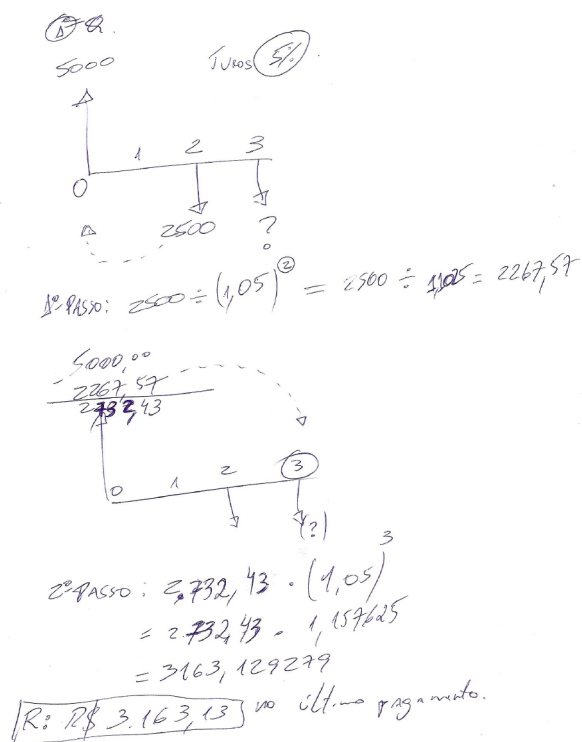 1ª Q.
5000 Juros 5%.
1 2 3
0
2500 ?
1º PASSO: 2500 ÷ (1,05)² = 2500 ÷ 1,1025 = 2267,57
- 5000,00
2267,57
2732,43
0 1 2 3
(?)
2º PASSO: 2.732,43 . (1,05)³
= 2.732,43 . 1,157625
= 3163,129279
R: R$ 3.163,13 no último pagamento.